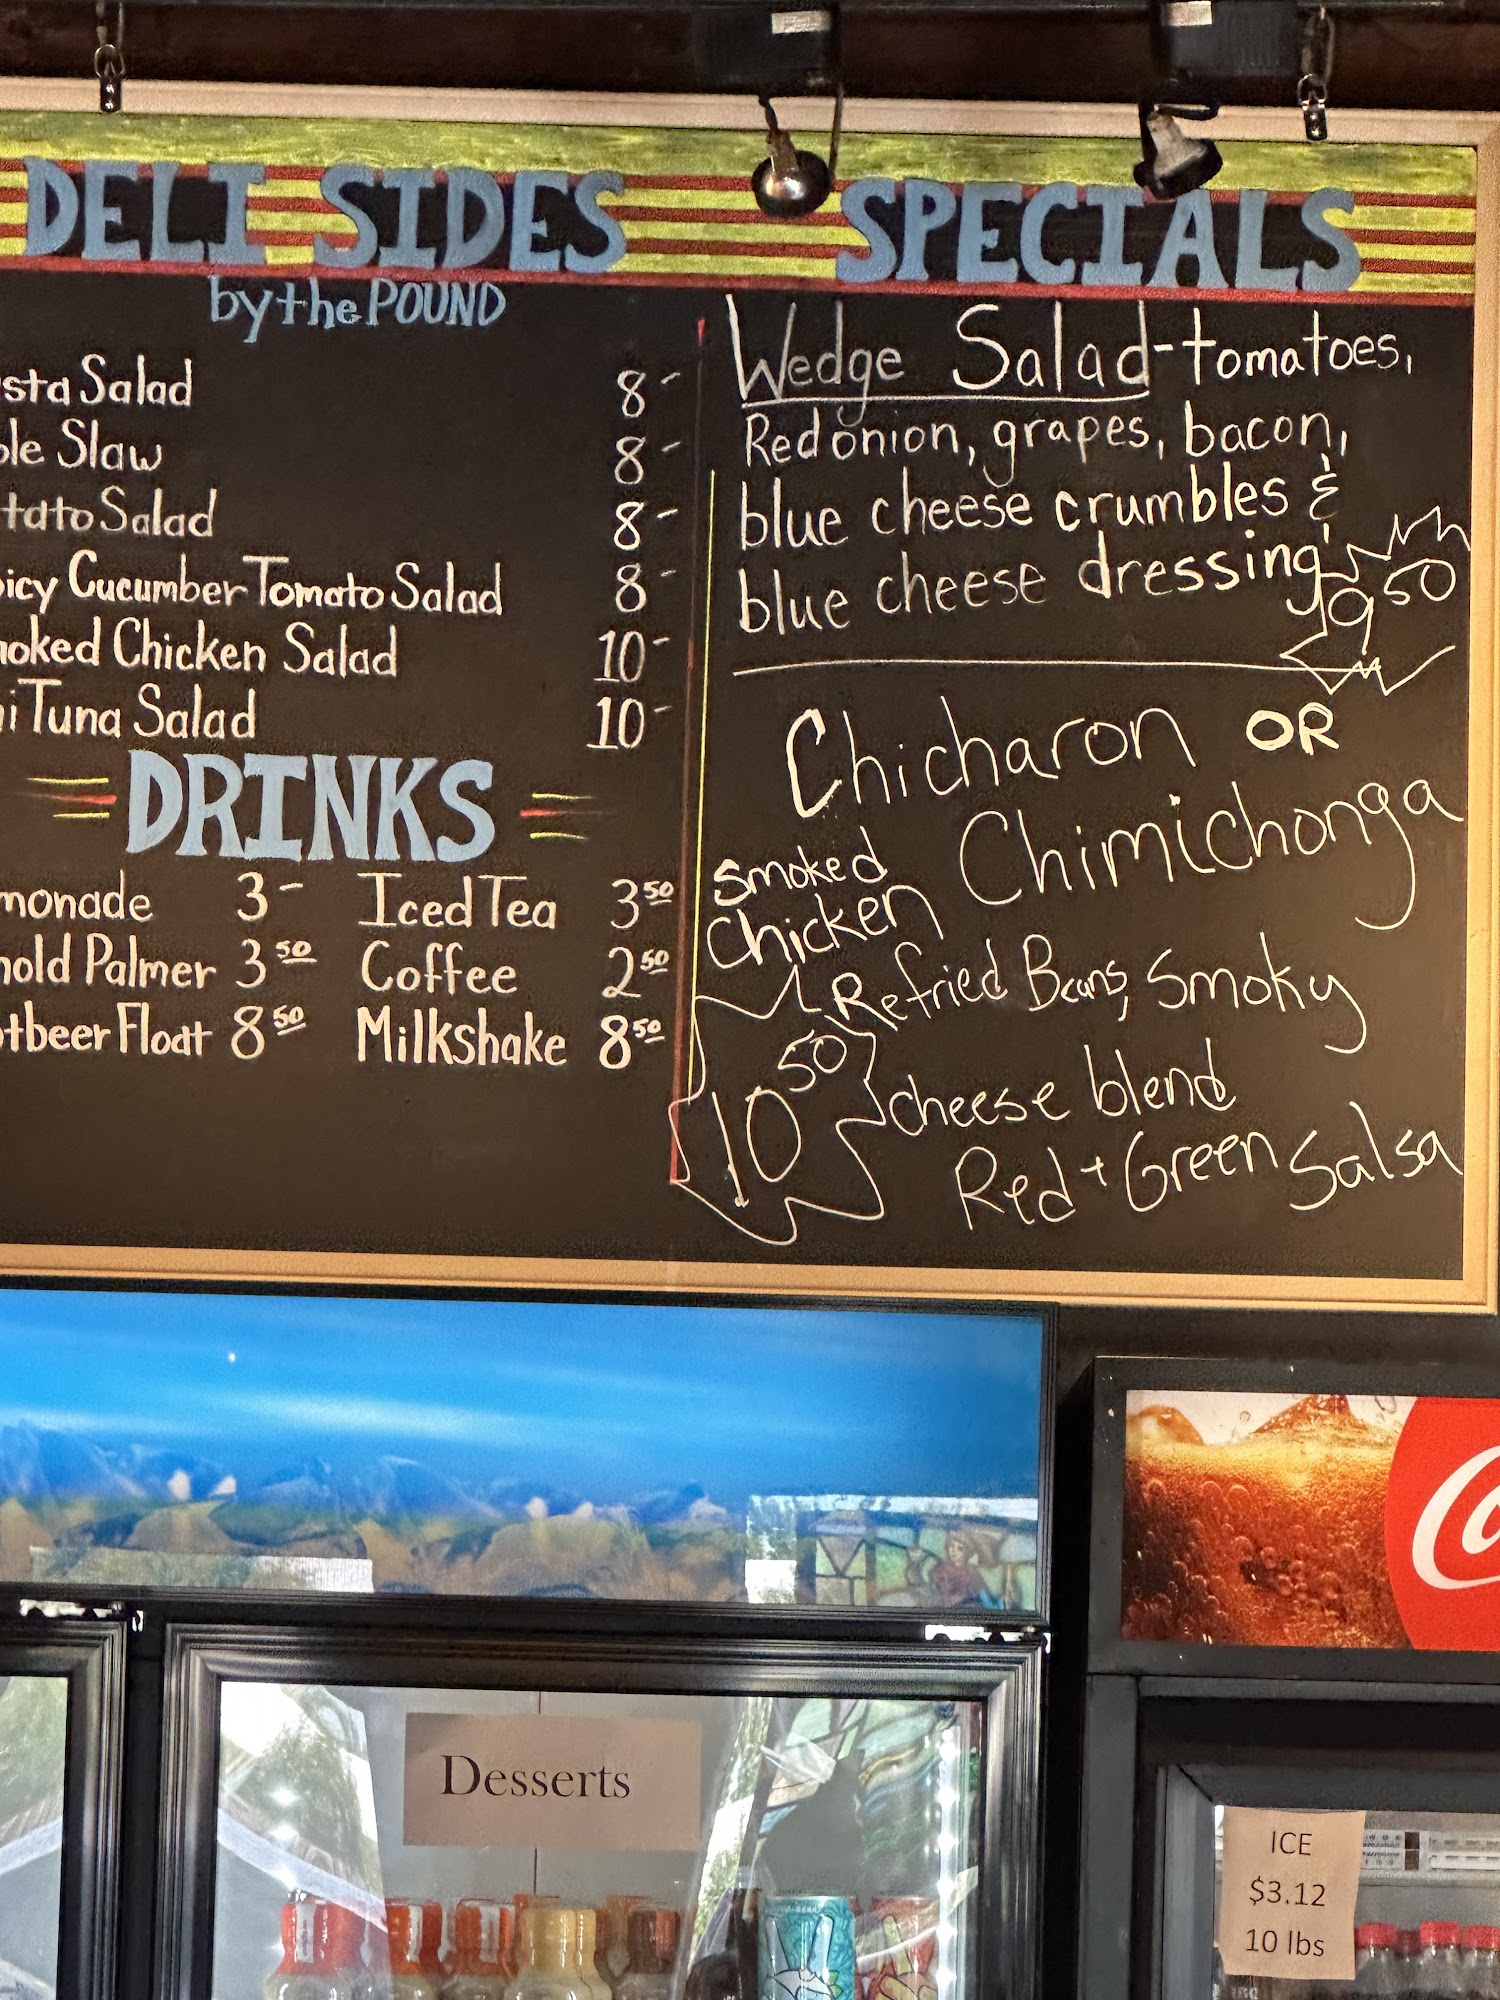 DELI SIDES
by the POUND
sta Salad 8-
le Slaw 8-
tato Salad 8-
icy Cucumber Tomato Salad 8-
oked Chicken Salad 10-
i Tuna Salad 10-
DRINKS
monade 3- Iced Tea 3 50
nold Palmer 3 50 Coffee 2 50
otbeer Floatt 8 50 Milkshake 8 50
SPECIALS
Wedge Salad - tomatoes,
Red onion, grapes, bacon,
blue cheese crumbles &
blue cheese dressing
9 50
Chicharon OR
Chimichonga
Smoked
Chicken
Refried Beans, Smoky
10 50
cheese blend
Red + Green Salsa
Desserts
ICE
$3.12
10 lbs